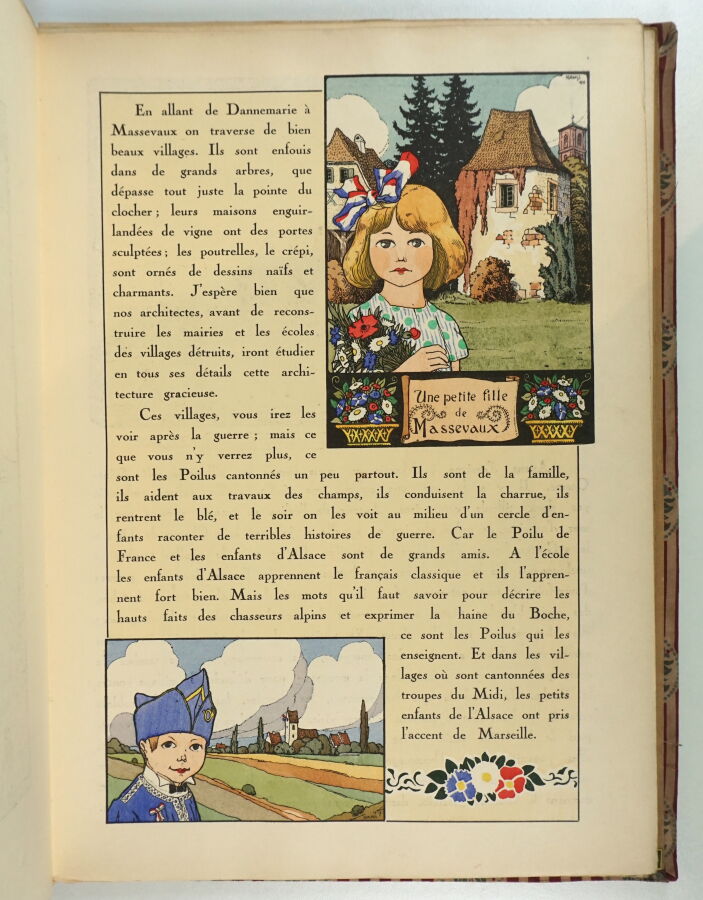 En allant de Dannemarie à
Massevaux on traverse de bien
beaux villages. Ils sont enfouis
dans de grands arbres, que
dépasse tout juste la pointe du
clocher ; leurs maisons enguir-
landées de vigne ont des portes
sculptées ; les poutrelles, le crépi,
sont ornés de dessins naïfs et
charmants. J'espère bien que
nos architectes, avant de recons-
truire les mairies et les écoles
des villages détruits, iront étudier
en tous ses détails cette archi-
tecture gracieuse.
Ces villages, vous irez les
voir après la guerre ; mais ce
que vous n'y verrez plus, ce
sont les Poilus cantonnés un peu partout. Ils sont de la famille,
ils aident aux travaux des champs, ils conduisent la charrue, ils
rentrent le blé, et le soir on les voit au milieu d'un cercle d'en-
fants raconter de terribles histoires de guerre. Car le Poilu de
France et les enfants d'Alsace sont de grands amis. A l'école
les enfants d'Alsace apprennent le français classique et ils l'appren-
nent fort bien. Mais les mots qu'il faut savoir pour décrire les
hauts faits des chasseurs alpins et exprimer la haine du Boche,
ce sont les Poilus qui les
enseignent. Et dans les vil-
lages où sont cantonnées des
troupes du Midi, les petits
enfants de l'Alsace ont pris
l'accent de Marseille.
Une petite fille
de
Massevaux
HANSI